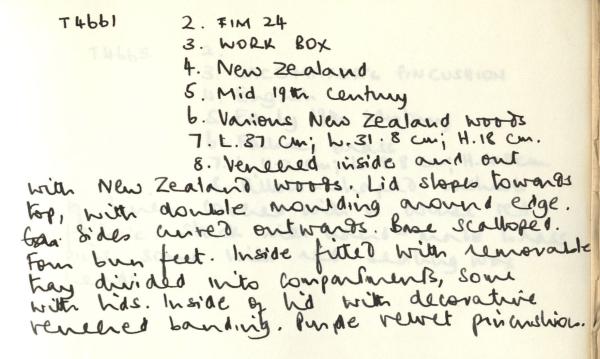 T4661 2. FIM 24
3. WORK BOX
4. New Zealand
5. Mid 19th Century
6. Various New Zealand woods
7. L.37 cm; W.31.8 cm; H.18 cm.
8. Veneered inside and out
with New Zealand woods. Lid slopes towards
top, with double moulding around edge.
Sides curved outwards. Base scalloped.
Four bun feet. Inside fitted with removable
tray divided into compartments, some
with lids. Inside of lid with decorative
veneered banding. Purple velvet pincushion.